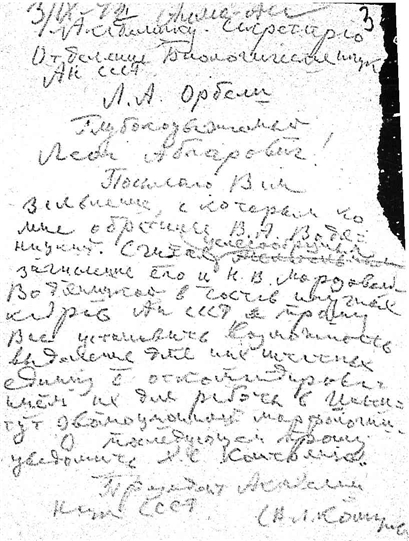 3/IX-42 Алма-Ата
3
Академику-Секретарю
Отделения Биологических наук
Ак СССР
Л. А. Орбели
Глубокоуважаемый
Леон Абгарович!
Посылаю Вам
заявление, с которым ко
мне обратился В. А. Водя-
ницкий. Считаю целесообразным
зачисление его и Н. В. Морозовой
Водяницкой в состав научных
кадров Ак СССР и прошу
Вас установить возможность
выделения для них штатных
единиц с откомандирова-
нием их для работы в Инсти-
тут эволюционной морфологии.
О последующем прошу
уведомить Х. С. Коштоянца.
Президент Академии
Наук СССР
(В. Л. Комаров